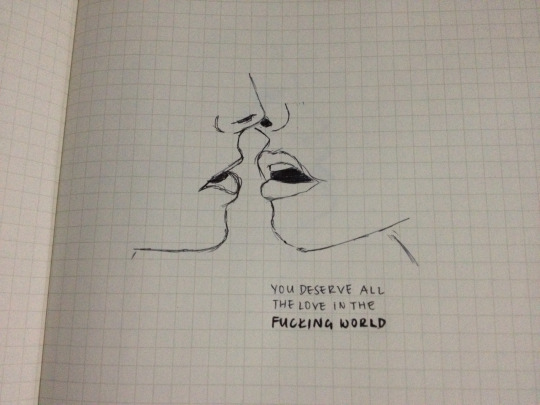 YOU DESERVE ALL
THE LOVE IN THE
FUCKING WORLD